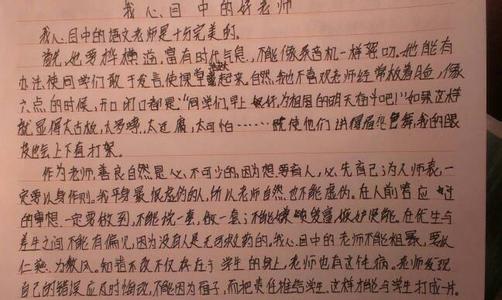 我心目中的好老师
我心目中的语文老师是十分完美的。
首先，他要样 ，富有时代气息，不能像录音机一样 叨。他能有
办法使同学们敢于发言，使课堂 起来。自然，我也不喜欢老师经常板着 ，像
六点的时候，开口闭口都是："同学们，早上好，为祖国的明天奋斗吧！"如果这样
就显得太古板，太罗嗦，太迂腐，太可怕…… 使他们讲得眉飞色舞，我的眼
皮也会上下直打架。
作为老师，善良自然是必不可少的，因为想要育人，必先自己为人师表，一
定要以身作则。我平身最恨虚伪的人，所以老师自然也不能虚伪。在人前答应过
的事想一定要做到，不能说一套，做一套；不能 。在优生与
差生之间不能有偏见，因为没有人是无可救药的。我心目中的老师不能粗暴，要以
仁慈为教风。知错不改不仅存在于学生的身上，老师也有这传病。老师发现
自己的错误应及时悔改，不能因为面子，而把责任推给学生。这样才能与学生打成一片。